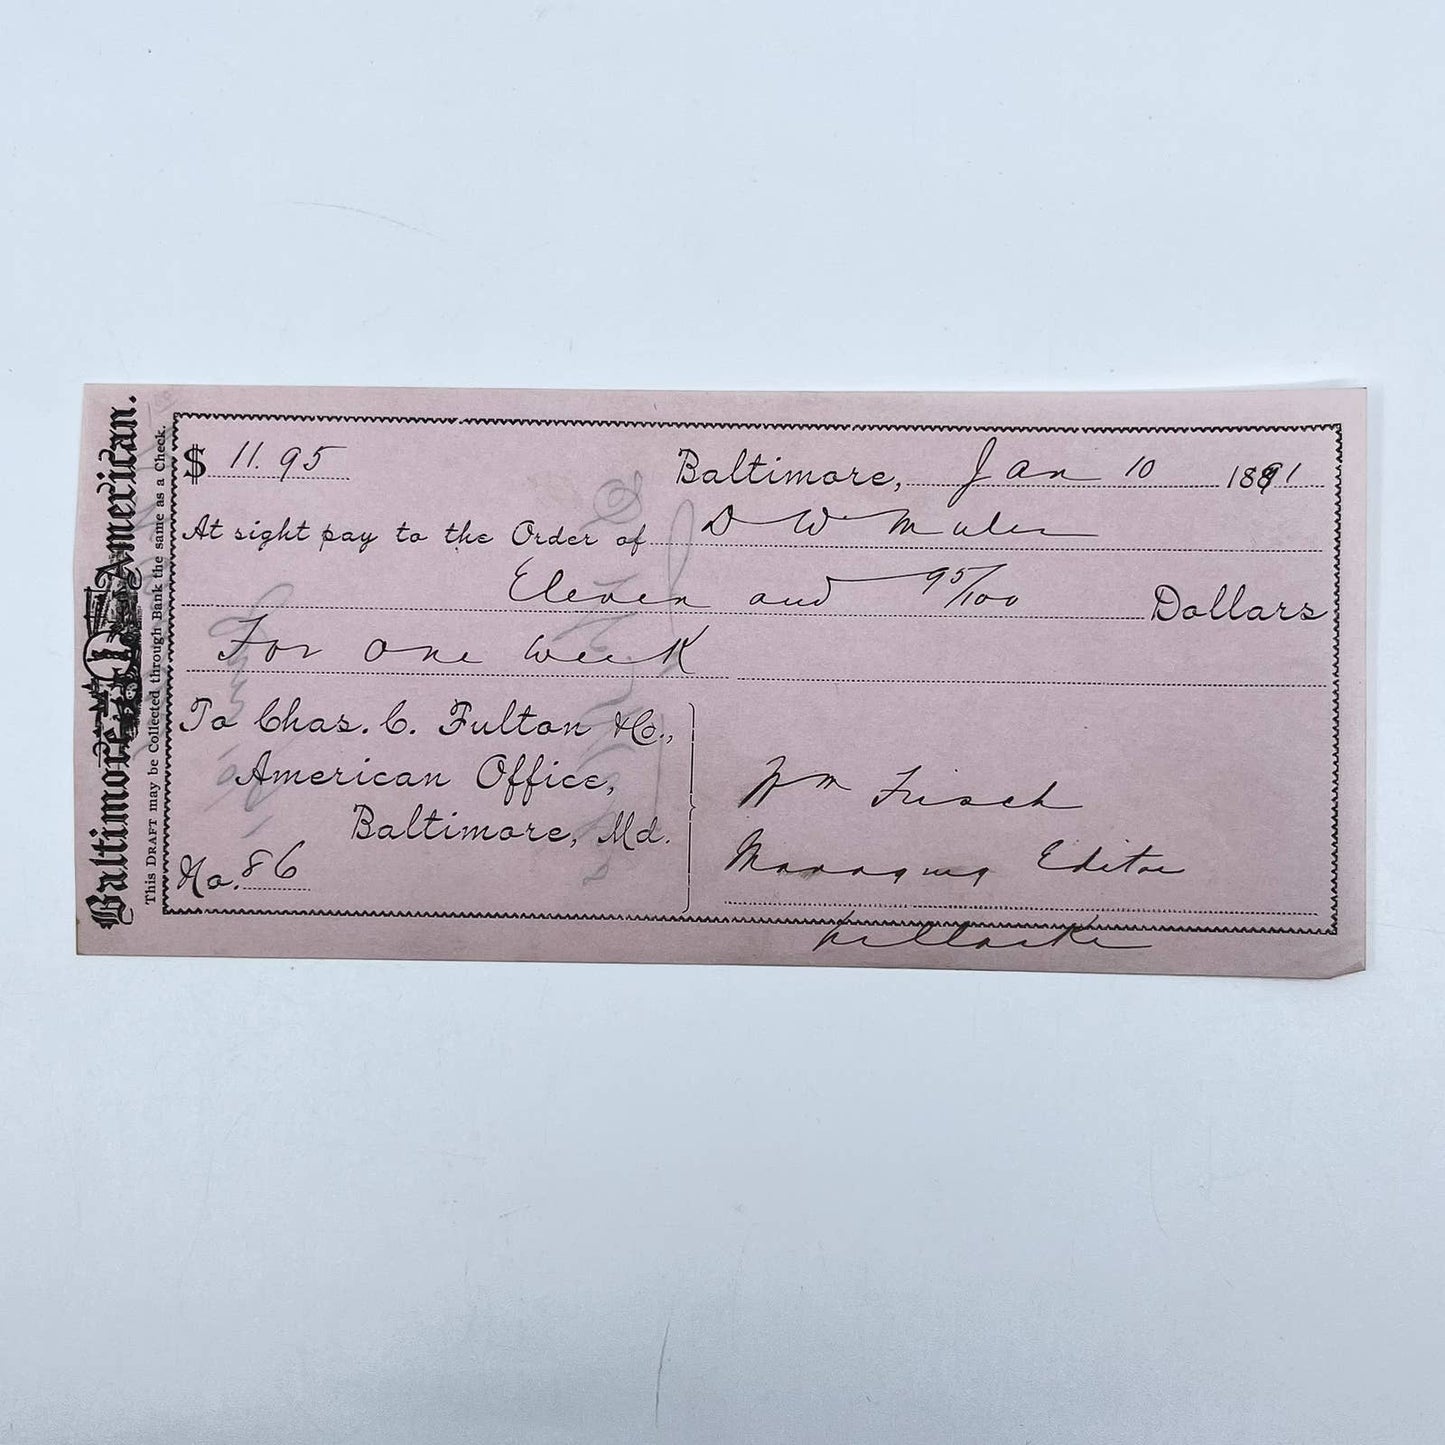 Baltimore American.
This DRAFT may be Collected through Bank the same as a Check.
$ 11.95 Baltimore, Jan 10 1891
At sight pay to the Order of D W
Eleven and 95/100 Dollars
For one week
To Chas. C. Fulton & Co.,
American Office,
Baltimore, Md.
No. 86
Wm Frisch
Managing Editor